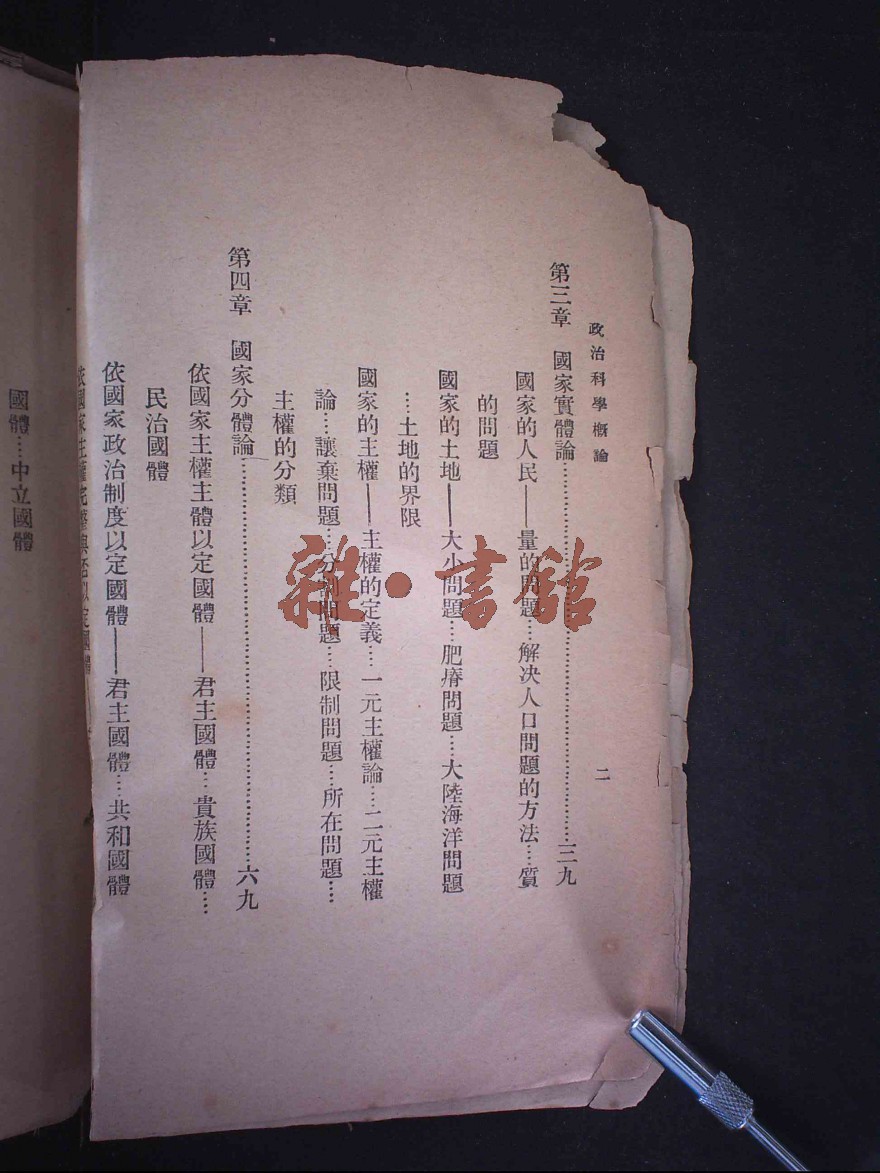 政治科學概論
二
第三章　國家實體論……三九
國家的人民——量的問題…解決人口問題的方法…質
的問題
國家的土地——大小問題…肥瘠問題…大陸海洋問題
…土地的界限
國家的主權——主權的定義…一元主權論…二元主權
論…讓棄問題…分割問題…限制問題…所在問題…
主權的分類
第四章　國家分體論……六九
依國家主權主體以定國體——君主國體…貴族國體…
民治國體
依國家政治制度以定國體——君主國體…共和國體
依國家主權完整與否以定國體——
國體…中立國體
雜·書館